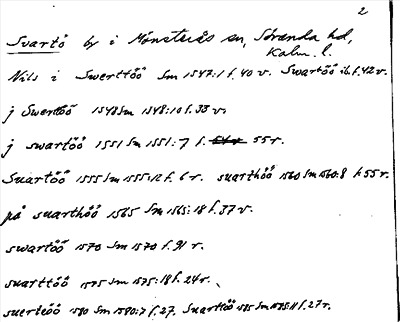 2
Svartö by i Mönsterås sn, Stranda hd,
Kalm. l.
Nils i Swerttöö Sm 1547:1 f. 40 v. Swartöö ib. f. 42 v.
j Swerttöö 1548 Sm 1548:10 f. 33 v.
j swartöö 1551 Sm 1551:7 f. 55 r.
Suartöö 1555 Sm 1555:12 f. 6 r. suarthöö 1560 Sm 1560:8 f. 55 r.
på suarthöö 1565 Sm 1565:18 f. 37 v.
swartöö 1570 Sm 1570 f. 91 r.
suarttöö 1575 Sm 1575:18 f. 24 r.
suerteöö 1580 Sm 1580:7 f. 27. Suarttöö 1585 Sm 1585:11 f. 27 r.